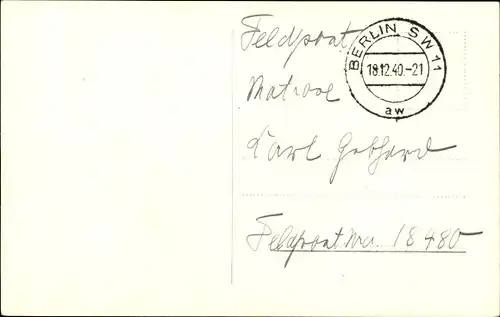 Feldpost
BERLIN SW 11
18.12.40.-21
aw
Matrose
Carl Gebhard
Feldpost Nr. 18480